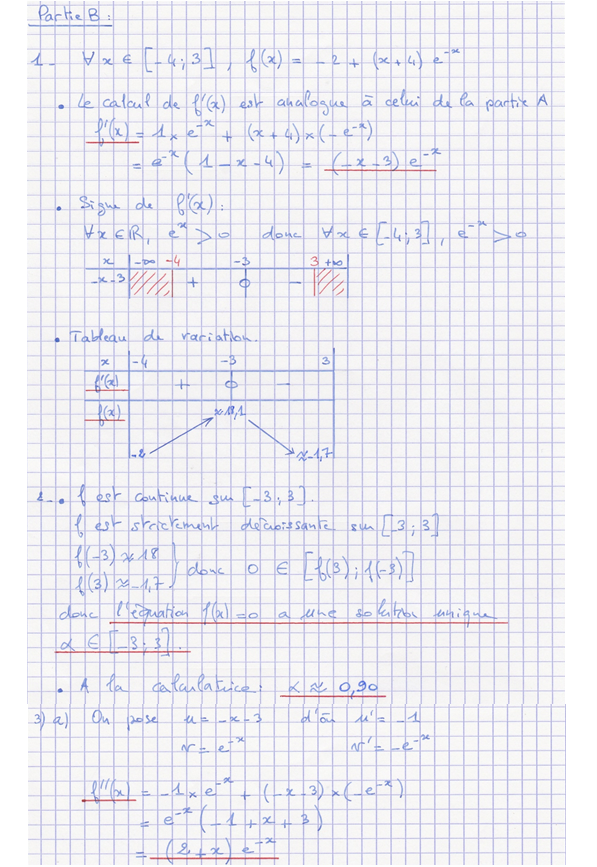 Partie B :
1- ∀x ∈ [-4; 3], f(x) = -2 + (x+4) e^{-x}
• Le calcul de f'(x) est analogue à celui de la partie A
f'(x) = 1 × e^{-x} + (x+4) × (-e^{-x})
= e^{-x} (1 - x - 4) = (-x-3) e^{-x}
• Signe de f'(x) :
∀x ∈ ℝ, e^x > 0 donc ∀x ∈ [-4; 3], e^{-x} > 0
x -∞ -4 -3 3 +∞
-x-3 + 0 -
• Tableau de variation.
x -4 -3 3
f'(x) + 0 -
f(x) ≈18,1
-2 ≈-1,7
2- • f est continue sur [-3; 3].
f est strictement décroissante sur [-3; 3]
f(-3) ≈ 18
f(3) ≈ -1,7 } donc 0 ∈ [f(3); f(-3)]
donc l'équation f(x) = 0 a une solution unique
α ∈ [-3; 3].
• A la calculatrice : α ≈ 0,90
3) a) On pose u = -x-3 d'où u' = -1
v = e^{-x} v' = -e^{-x}
f''(x) = -1 × e^{-x} + (-x-3) × (-e^{-x})
= e^{-x} (-1 + x + 3)
= (2+x) e^{-x}